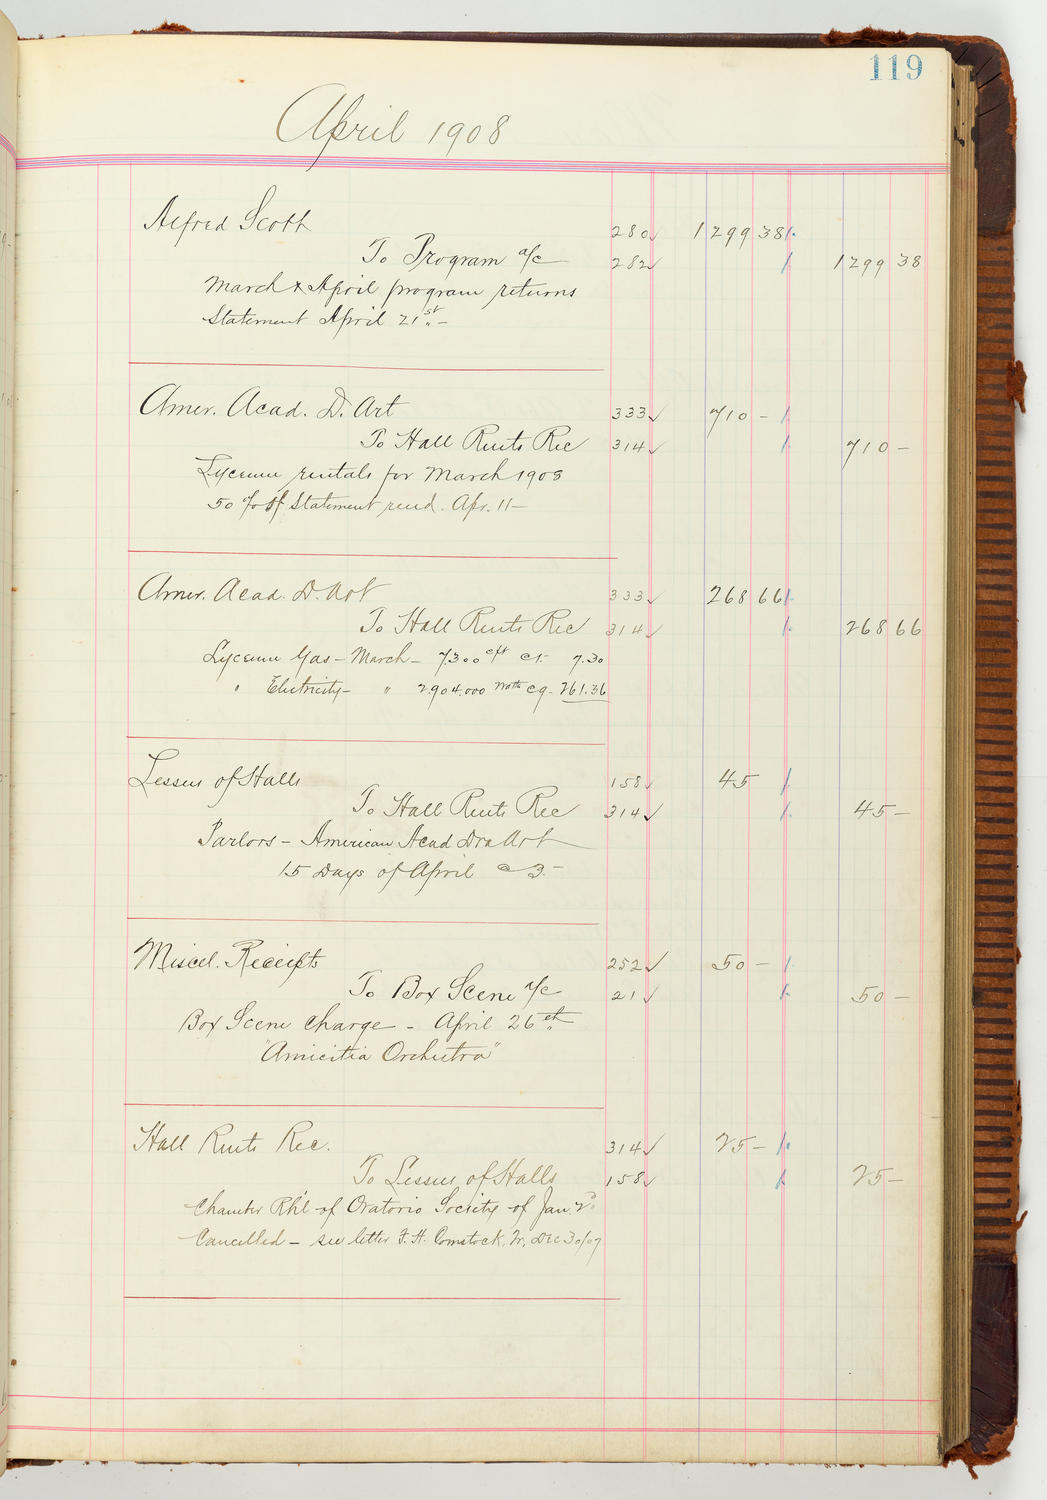 119
April 1908
Alfred Scott 280 1299 38
To Program a/c 282 1299 38
March & April program returns
Statement April 21st –
Amer. Acad. D. Art 333 710 –
To Hall Rents Rec 314 710 –
Lyceum rentals for March 1908
50 % of Statement rend. Apr. 11 –
Amer. Acad. D. Art 333 268 66
To Hall Rents Rec 314 268 66
Lyceum Gas – March – 7300 cft @ 1. 7.30
" Electricity – " 2904.000 Watts @ 9 – 261.36
Lessees of Halls 158 45
To Hall Rents Rec 314 45 –
Parlors – American Acad Dra Art
15 Days of April @ 3. –
Miscel. Receipts 252 50 –
To Box Scene a/c 21 50 –
Box Scene Charge – April 26th
"Amicitia Orchestra"
Hall Rents Rec. 314 25 –
To Lessees of Halls 158 25 –
Chamber Rh'l of Oratorio Society of Jan. 2d
Cancelled – see letter F. H. Comstock, Dec 30/07